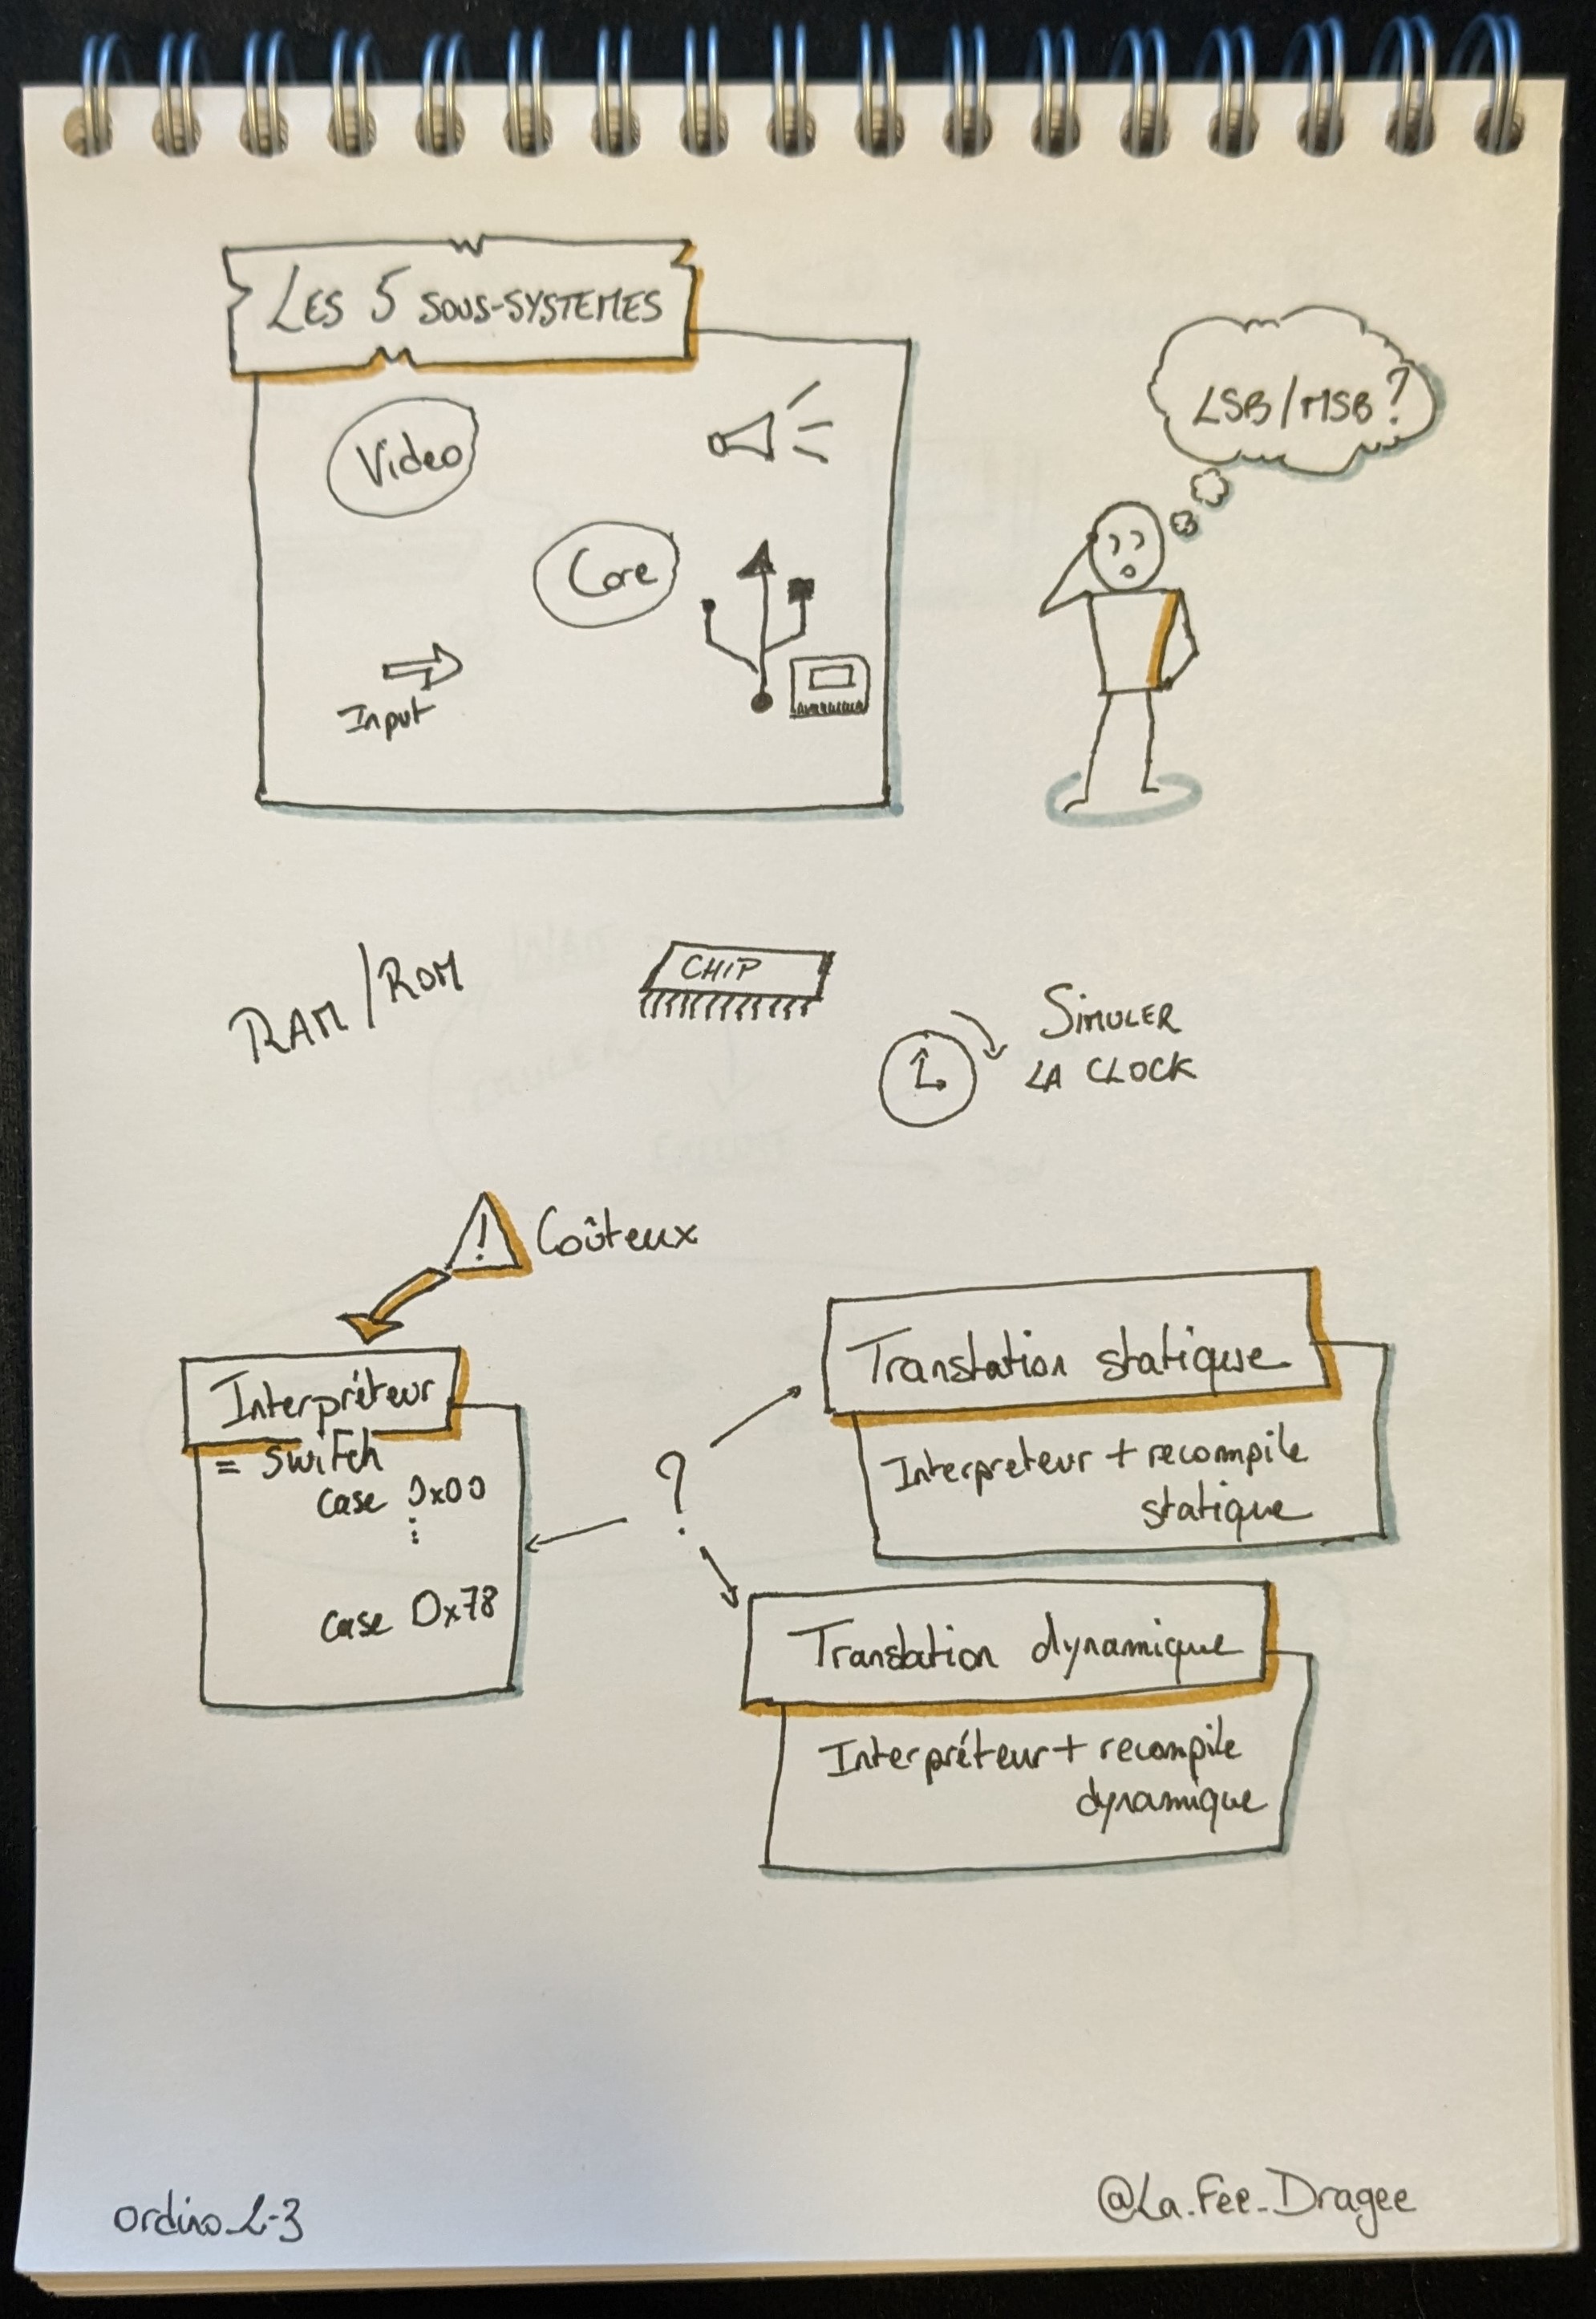 LES 5 SOUS-SYSTEMES
Video
Core
Input
LSB/MSB?
RAM/ROM
CHIP
SIMULER
LA CLOCK
! Coûteux
Interpréteur
= switch
case 0x00
:
case 0x78
?
Translation statique
Interpreteur + recompile
statique
Translation dynamique
Interpréteur + recompile
dynamique
@La_Fee_Dragee